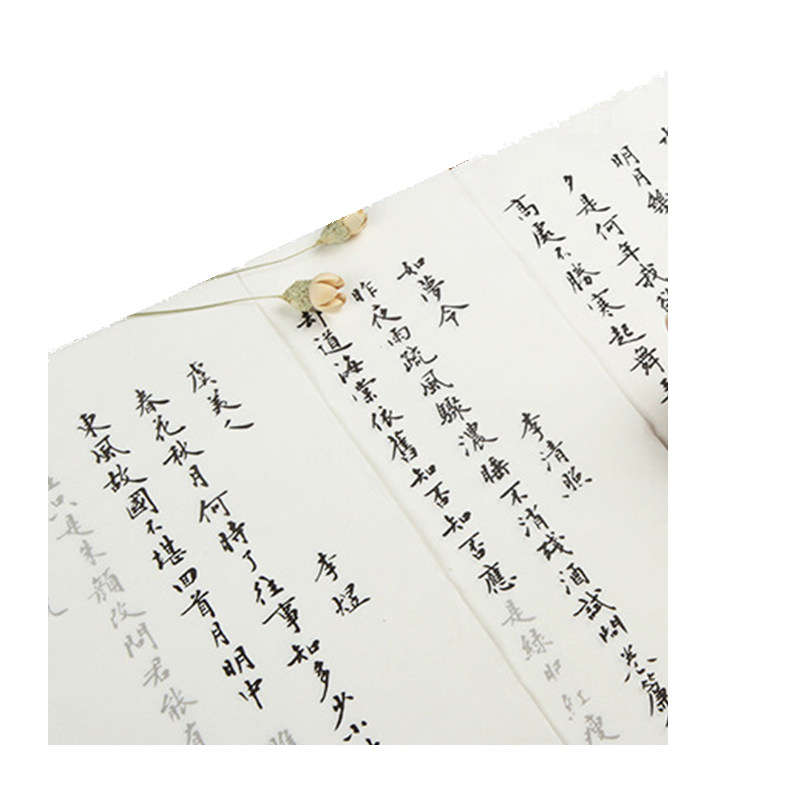 明月幾
夕是何年我欲
高處不勝寒起舞
如夢令 李清照
昨夜雨疏風驟濃睡不消殘酒試問卷簾
却道海棠依舊知否知否應是綠肥紅瘦
虞美人 李煜
春花秋月何時了往事知多少小
東風故國不堪回首月明中
在只是朱顏改問君能有